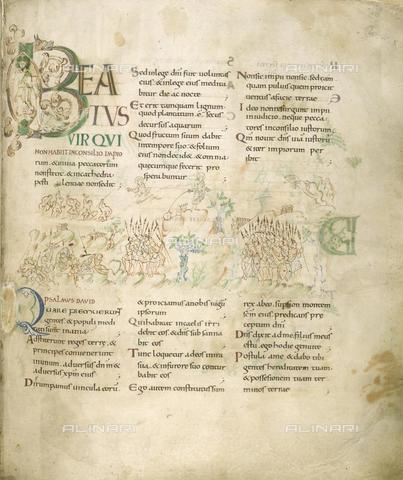 BEA
TUS
VIR QUI
NON ABIIT IN CONSILIO IMPIO
rum, & in uia peccatorum
non stetit, & in cathedra
pesti lentiae non sedit;
Sed in lege dni fuit uoluntas
eius & in lege eius medita
bitur die ac nocte
Et erit tamquam lignum
quod plantatum ē secus
decursus aquarum
Quod fructum suum dabit
in tempore suo & folium
eius non decid& & omnia
quaecumque feceri& pro
sperabuntur
Non sic impii non sic sed tam
quam puluis quem proicit
uentus a facie terrae
Ideo non resurgunt impii
in iudicio neque pecca
tores in consilio iustorum
Qm nouit dns uiā iustorū
& iter impiorum per
ibit
PSALMUS DAVID
Quare fremuerunt
gentes & populi medi
tati sunt inania
Adstiterunt reges terrae, &
principes conuenerunt
in unum. aduersus dnm &
aduersus xpm eius
Dirumpamus uincula eorū
& proiciamus a nobis iugū
ipsorum
Qui habitat in caelis irri
debit eos & dns sub sanna
bit eos
Tunc loquetur ad eos in ira
sua. & in furore suo contur
babit eos
Ego autem constitutus sum
rex ab eo. super sion montem
scm eius praedicans prae
ceptum dni
Dns dixit ad me filius meus
es tu. ego hodie genui te
Postula a me & dabo tibi
gentes hereditatem tuam.
& possessionem tuam ter
minos terrae
ALINARI
ALINARI
ALINARI
ALINARI
ALINARI